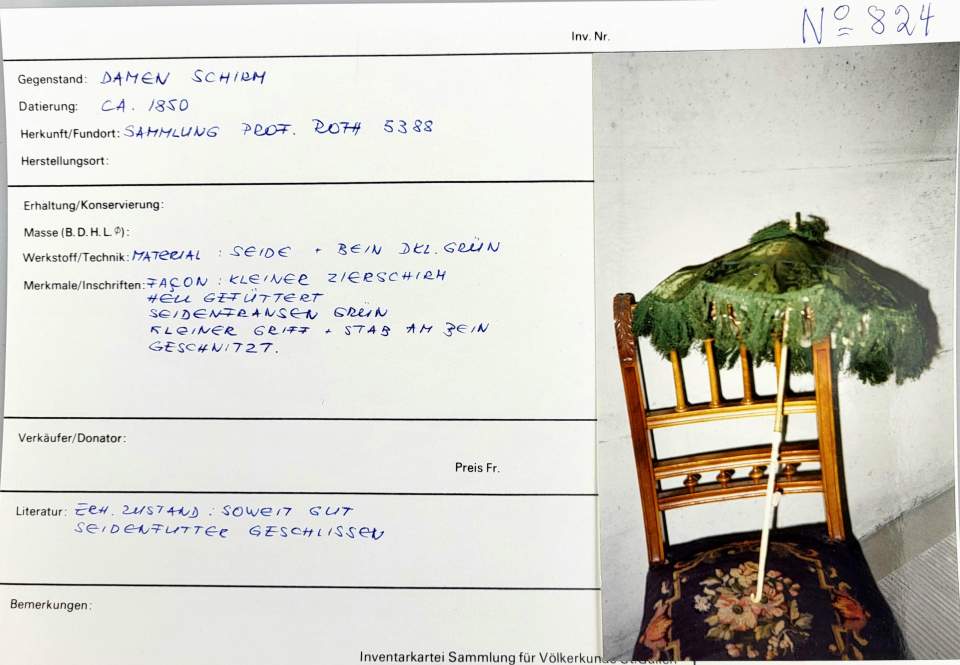 Inv. Nr. Nº 824
Gegenstand: DAMEN SCHIRM
Datierung: CA. 1850
Herkunft/Fundort: SAMMLUNG PROF. ROTH 5388
Herstellungsort:
Erhaltung/Konservierung:
Masse (B. D. H. L. ∅):
Werkstoff/Technik: MATERIAL : SEIDE + BEIN DKL. GRÜN
Merkmale/Inschriften: FAÇON : KLEINER ZIERSCHIRM
HELL GEFÜTTERT
SEIDENFRANSEN GRÜN
KLEINER GRIFF + STAB AM BEIN
GESCHNITZT.
Verkäufer/Donator:
Preis Fr.
Literatur: ERH. ZUSTAND : SOWEIT GUT
SEIDENFUTTER GESCHLISSEN
Bemerkungen:
Inventarkartei Sammlung für Völkerkunde St. Gallen